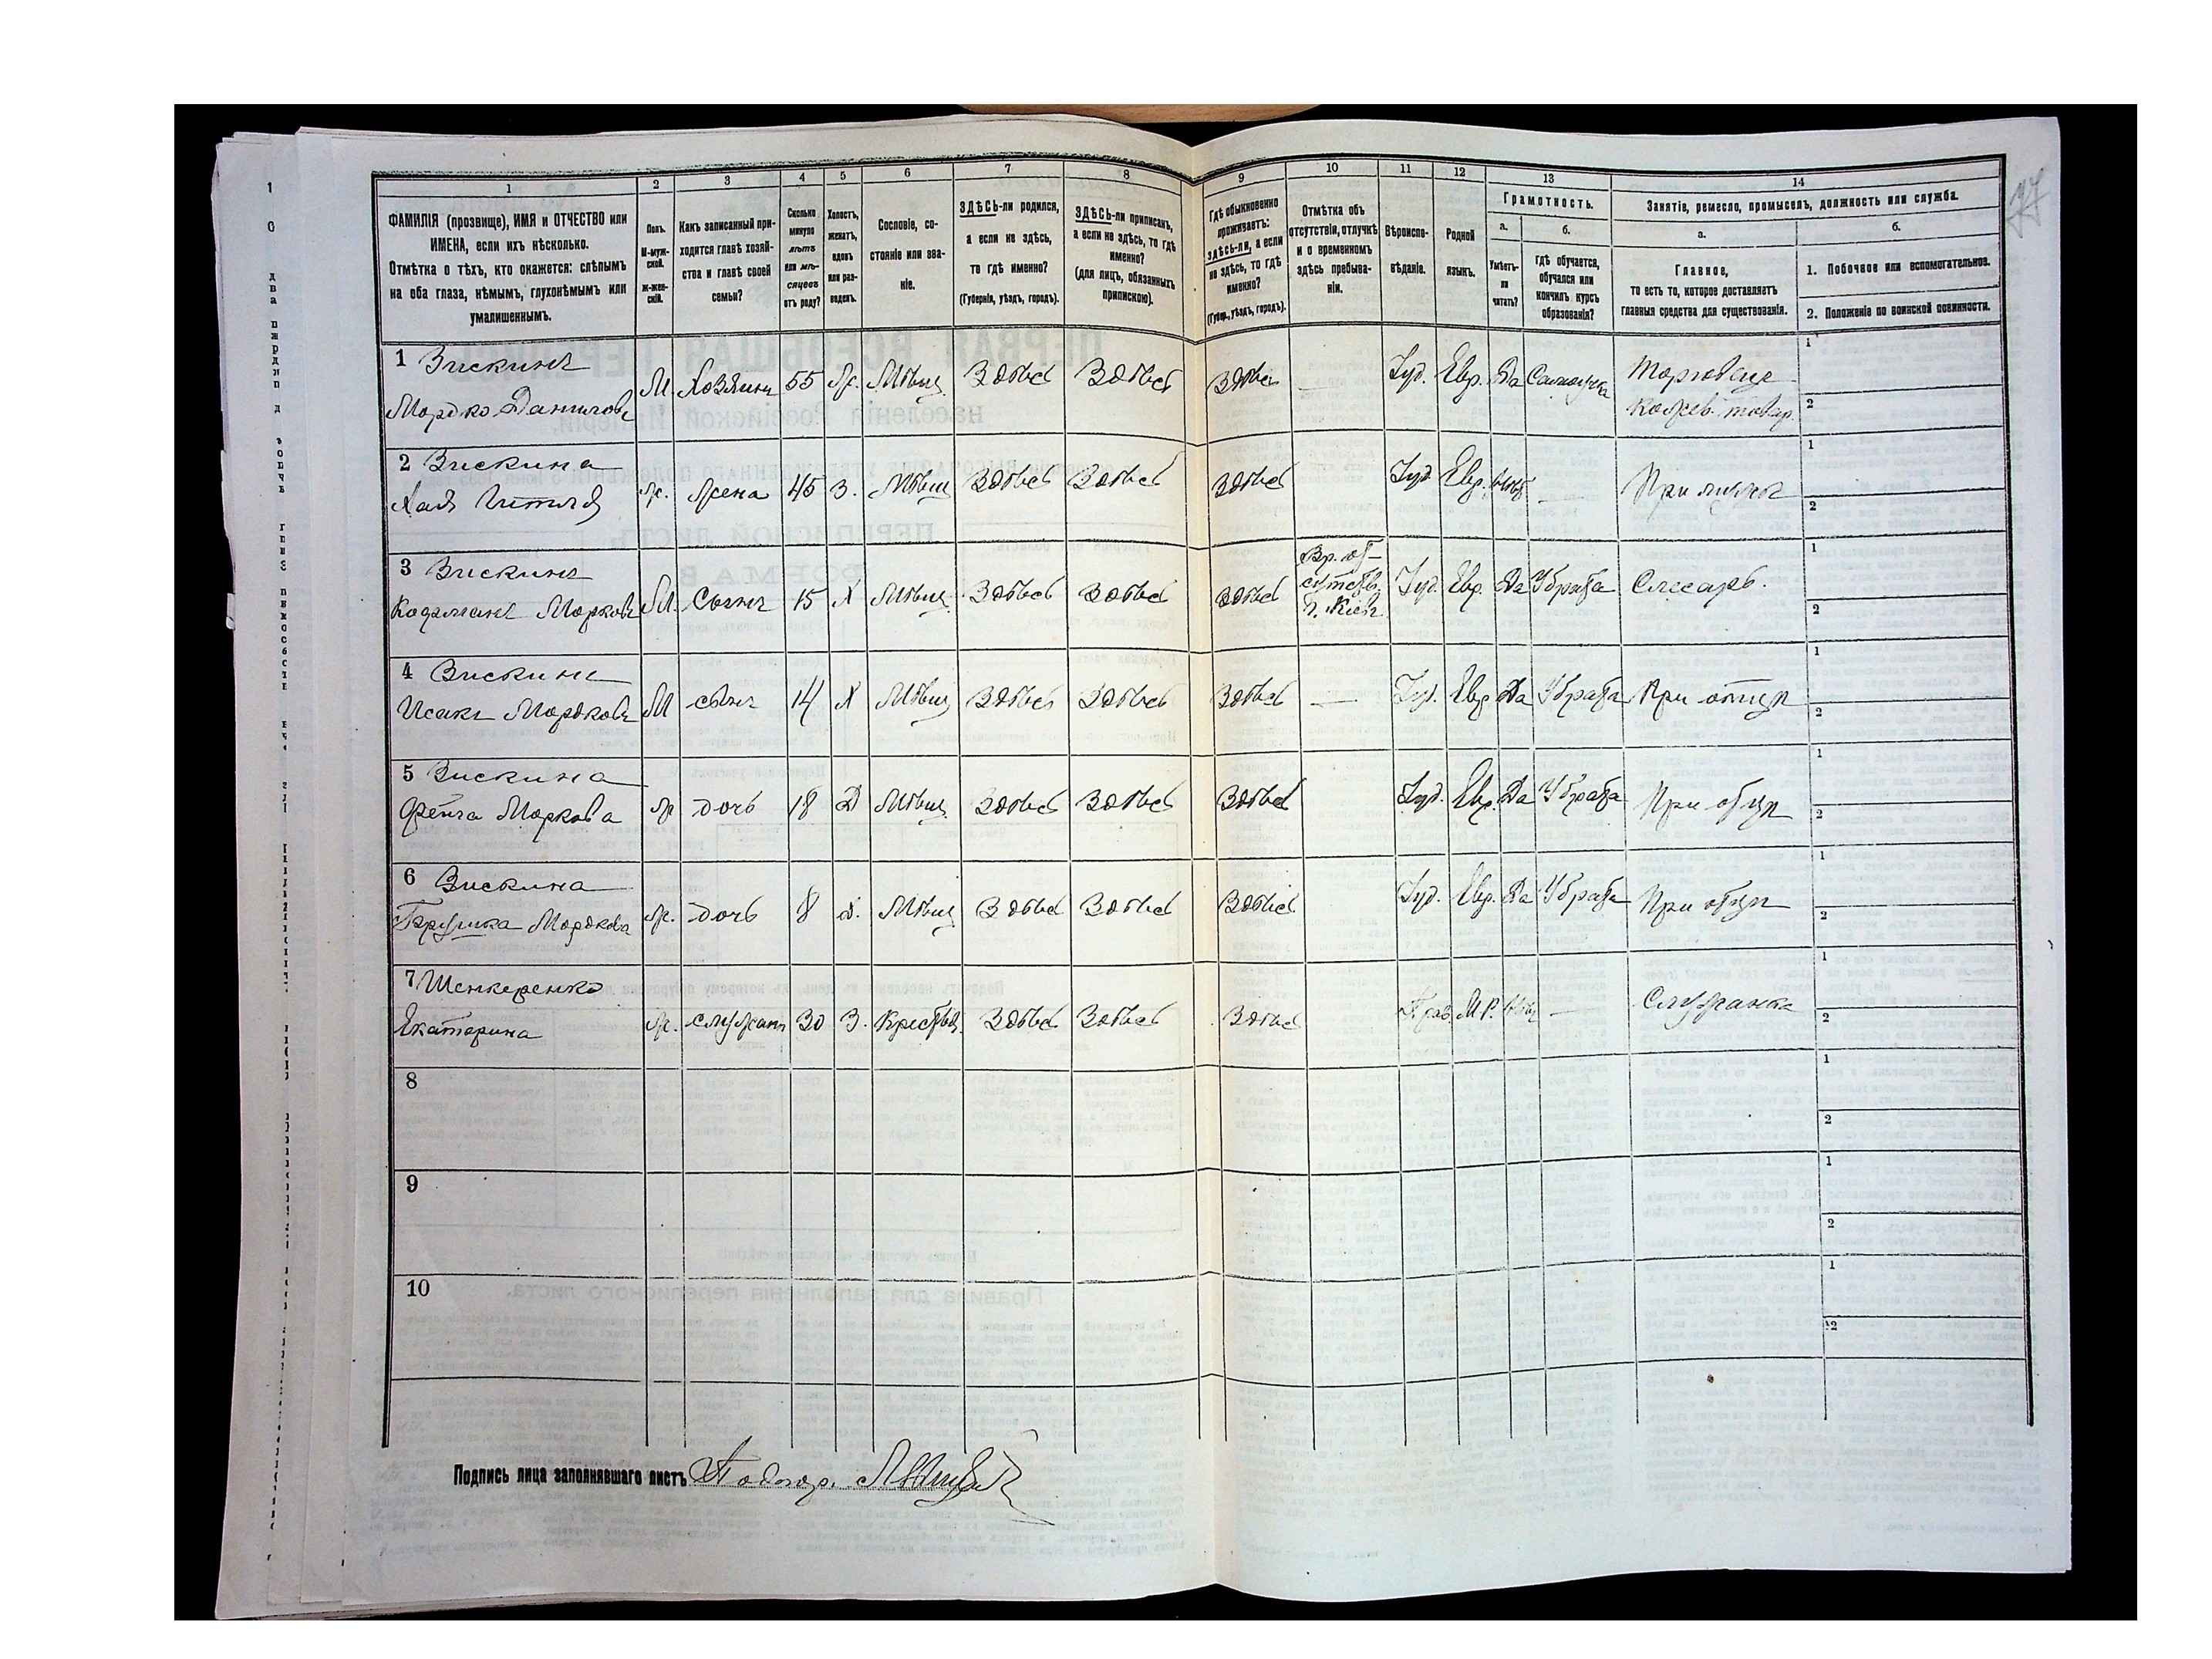 1 2 3 4 5 6 7 8 9 10 11 12 13 14
ФАМИЛІЯ (прозвище), ИМЯ и ОТЧЕСТВО или
ИМЕНА, если ихъ нѣсколько.
Отмѣтка о тѣхъ, кто окажется: слѣпымъ
на оба глаза, нѣмымъ, глухонѣмымъ или
умалишеннымъ.
Полъ.
М-муж-
ской.
ж-жен-
скій.
Какъ записанный при-
ходится главѣ хозяй-
ства и главѣ своей
семьи?
Сколько
минуло
лѣтъ
или мѣ-
сяцевъ
отъ роду?
Холостъ,
женатъ,
вдовъ
или раз-
веденъ.
Сословіе, со-
стояніе или зва-
ніе.
ЗДѢСЬ-ли родился,
а если не здѣсь,
то гдѣ именно?
(Губернія, уѣздъ, городъ).
ЗДѢСЬ-ли приписанъ,
а если не здѣсь, то гдѣ
именно?
(для лицъ, обязанныхъ
припискою).
Гдѣ обыкновенно
проживаетъ:
здѣсь-ли, а если
не здѣсь, то гдѣ
именно?
(Губер., уѣздъ, городъ).
Отмѣтка объ
отсутствіи, отлучкѣ
и о временномъ
здѣсь пребыва-
ніи.
Вѣроиспо-
вѣданіе.
Родной
языкъ.
Грамотность.
а.
Умѣетъ-
ли
читать?
б.
гдѣ обучается,
обучался или
кончилъ курсъ
образованія?
Занятіе, ремесло, промыселъ, должность или служба.
а.
Главное,
то есть то, которое доставляетъ
главныя средства для существованія.
б.
1. Побочное или вспомогательное.
2. Положеніе по воинской повинности.
1 Зискинъ
Мордко Даниловъ М Хозяинъ 55 Ж. Мѣщ Здѣсь Здѣсь Здѣсь — Іуд. Евр. Да Самоучка Торговецъ
Кожев. товар.
1
2
2 Зискина
Хая ж. жена 45 З. Мѣщ Здѣсь Здѣсь Здѣсь Іуд Евр. — При мужѣ
1
2
3 Зискинъ
Марковъ М. Сынъ 15 Х Мѣщ Здѣсь Здѣсь Здѣсь
Вр. от-
сутств.
г. Кіевъ
Іуд. Евр. Да У брата Слесарь.
1
2
4 Зискинъ
Исакъ Мордковъ М сынъ 14 Х Мѣщ Здѣсь Здѣсь Здѣсь — Іуд. Евр Да У брата При отцѣ
1
2
5 Зискина
Фейга Маркова ж дочь 18 Д Мѣщ Здѣсь Здѣсь Здѣсь Іуд. Евр. Да У брата При отцѣ
1
2
6 Зискина
Мордкова ж. дочь 8 Д. Мѣщ Здѣсь Здѣсь Здѣсь Іуд. Евр. Да У брата При отцѣ
1
2
7 Шенкеренко
Екатерина ж. служан 30 З. Крестья. Здѣсь Здѣсь Здѣсь Прав. М.Р. — Служанка
1
2
8
1
2
9
1
2
10
1
2
Подпись лица заполнявшаго листъ